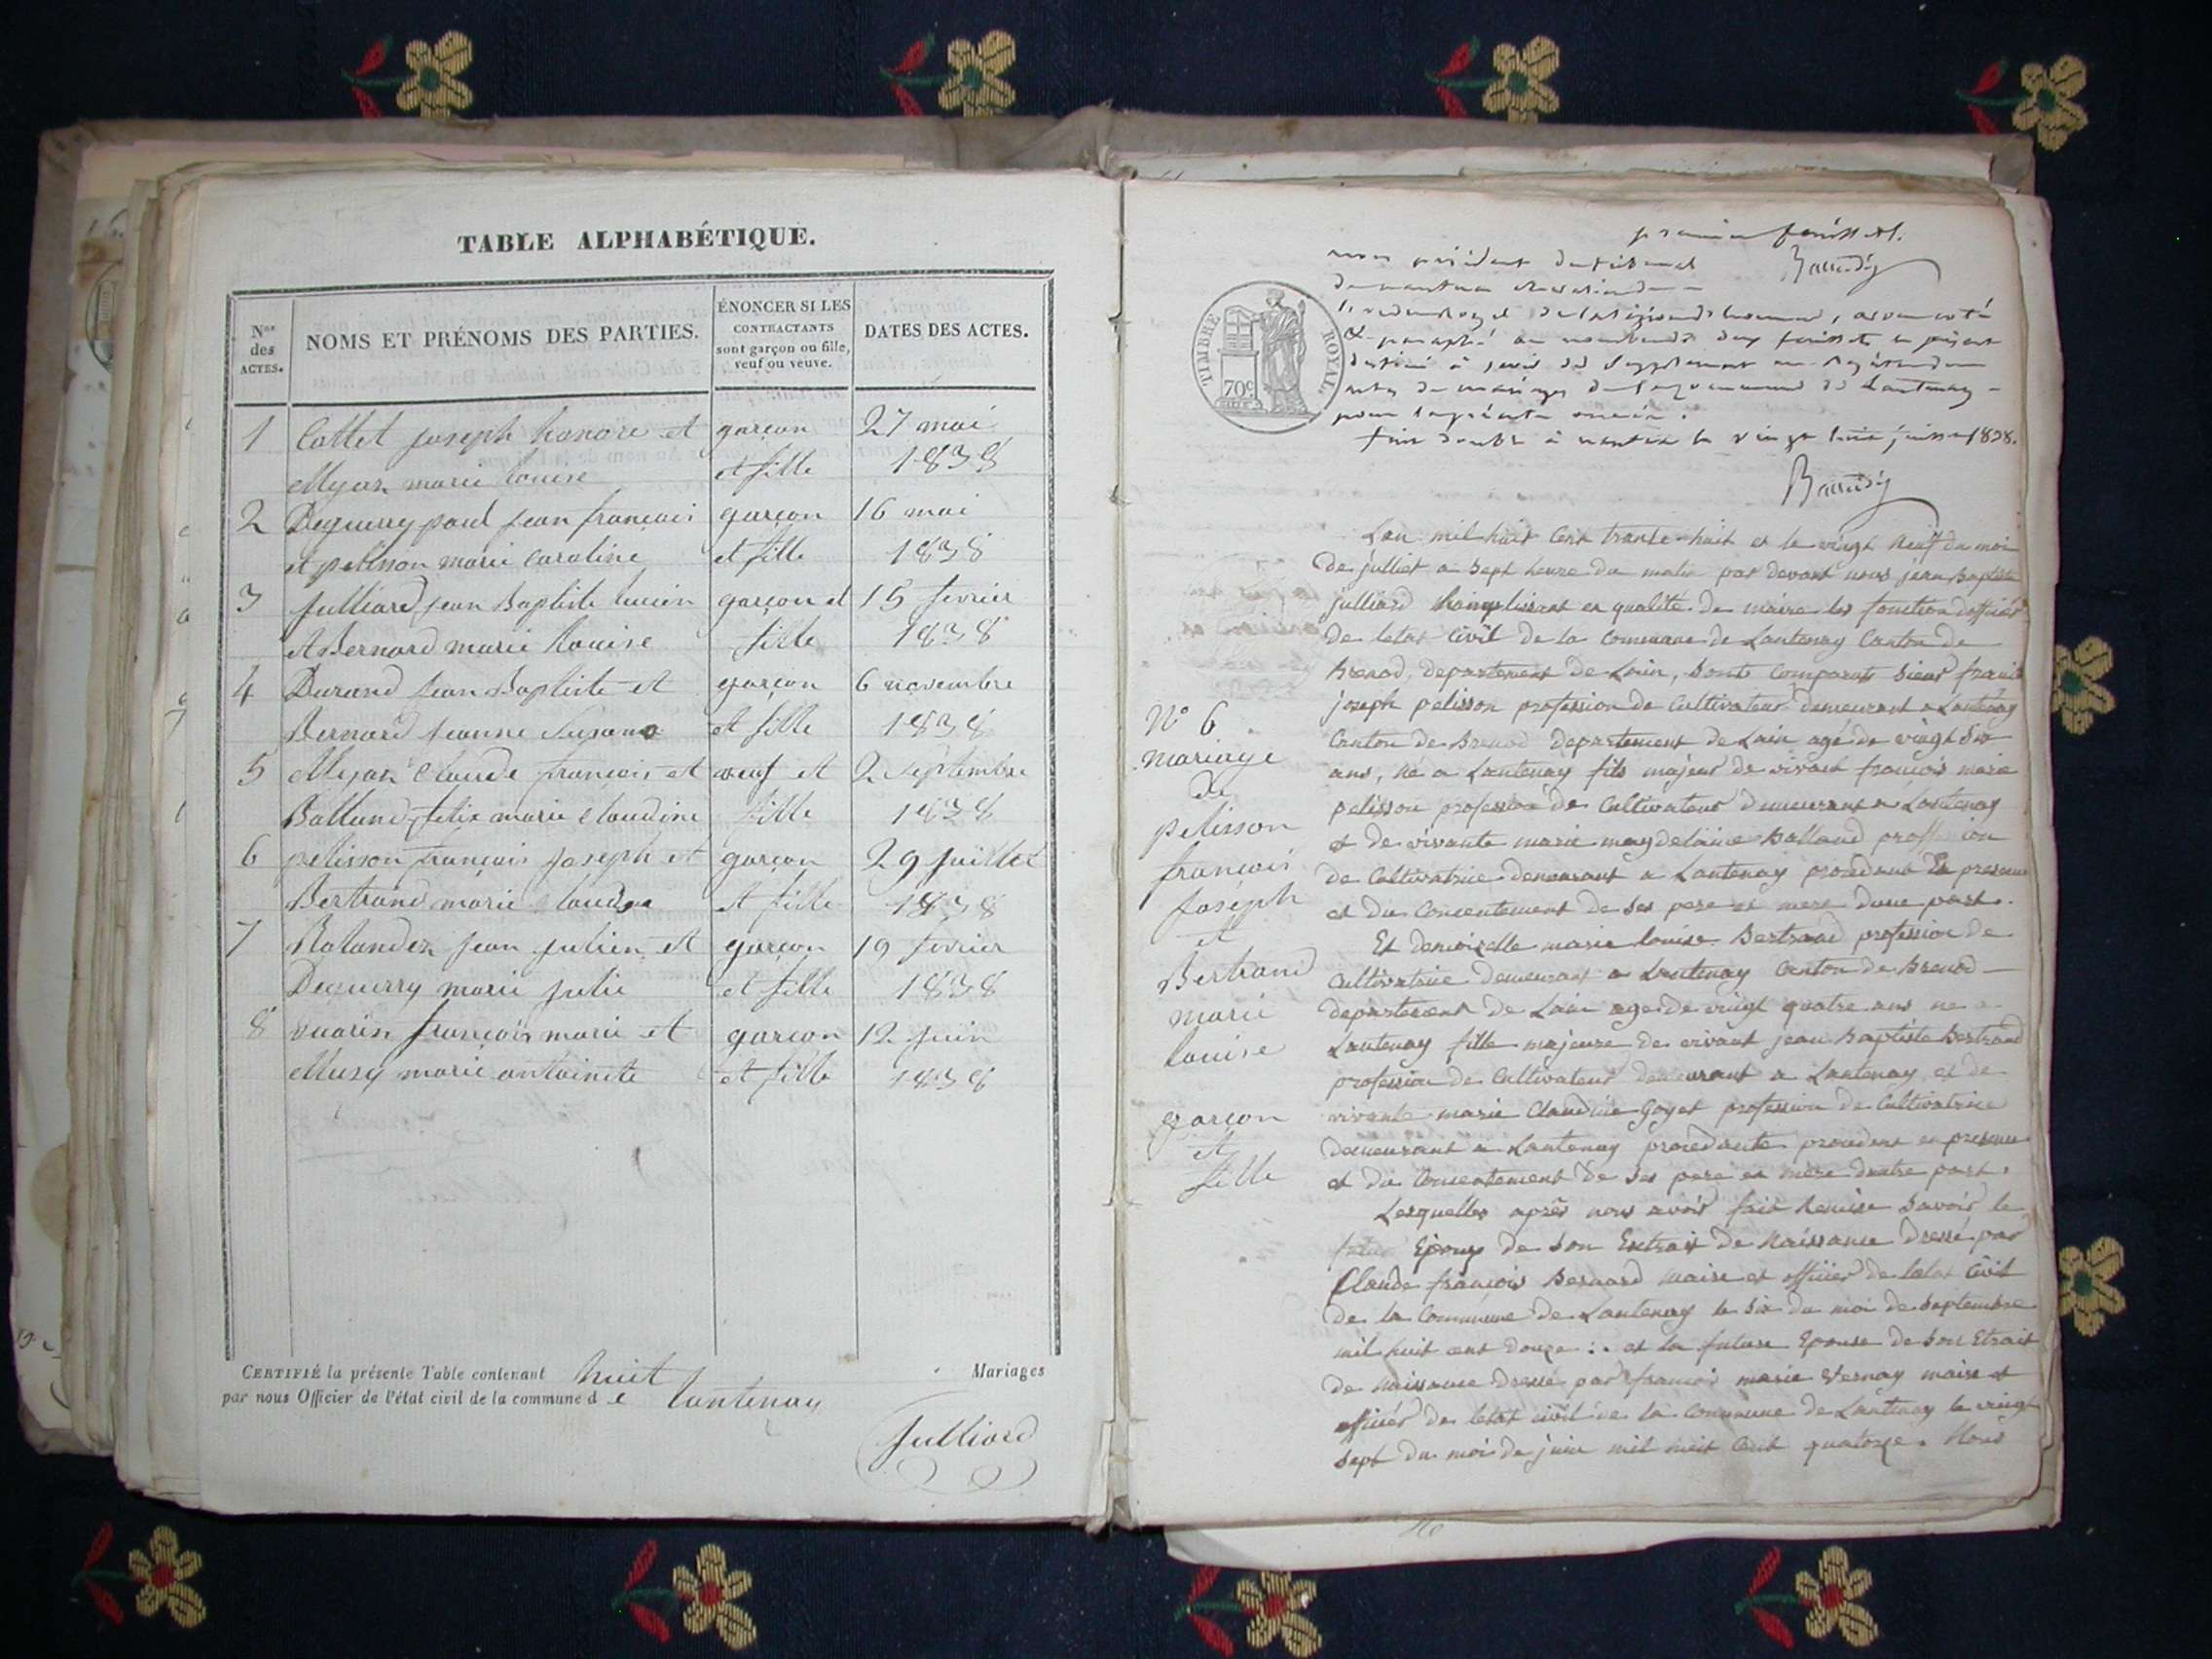 TABLE ALPHABÉTIQUE.
Nos des ACTES.
NOMS ET PRÉNOMS DES PARTIES.
ÉNONCER SI LES CONTRACTANTS sont garçon ou fille, veuf ou veuve.
DATES DES ACTES.
1 Cottet joseph honore et garçon 27 mai
Myan marie louise et fille 1838
2 Deguerry paul jean françois garçon 16 mai
et pelisson marie caroline et fille 1838
3 Julliard jean Baptiste lucien garçon et 15 fevrier
et Bernard marie louise fille 1838
4 Durand jean Baptiste et garçon 6 novembre
Bernard jeanne et fille 1838
5 Myan Claude françois et veuf et 2 septembre
Balland felix marie claudine fille 1838
6 pelisson françois joseph et garçon 29 juillet
Bertrand marie et fille 1838
7 Rolandez jean julien et garçon 19 fevrier
Deguerry marie julie et fille 1838
8 vuarin françois marie et garçon 12 juin
Musy marie antoinete et fille 1838
CERTIFIÉ la présente Table contenant huit Mariages
par nous Officier de l'état civil de la commune d e lantenay
Julliard
TIMBRE ROYAL
70c
nous président du tribunal
pour la présente année.
1838.
L'an mil huit cent trante-huit et le vingt neuf du moi
de julliet a sept heure du matin par devant nous jean Baptiste
julliard Remplissant en qualité de maire les fonction d'officier
de letat civil de la commune de Lantenay Canton de
Brenod, departement de Lain, sont comparut sieur françois
joseph pelisson profession de cultivateur demeurant a Lantenay
Canton de Brenod departement de Lain agé de vingt six
ans, né a Lantenay fils majeur de vivant françois marie
pelisson profession de cultivateur demeurant a Lantenay
et de vivante marie magdelaine Balland profession
de cultivatrice demeurant a Lantenay procedant En presence
et du concentement de ses pere et mere dune part.
Et demoizelle marie louise Bertrand profession de
cultivatrice demeurant a Lantenay Canton de Brenod
departement de Lain age de vingt quatre ans ne a
Lantenay fille majeure de vivant jean Baptiste Bertrand
profession de cultivateur demeurant a Lantenay et de
vivante marie Claudine Goyet profession de cultivatrice
demeurant a Lantenay procedante procedent en presence
et du concentement de ses pere et mere dautre part.
Lesquelles après nous avoir fait Remise savoir le
futur Epoux de son Extrait de Naissance dressé par
Claude françois Bernard maire et officier de letat civil
de la commune de Lantenay le six du moi de septembre
mil huit cent douze : et la future Epouse de son Etrait
de naissance dressé par françois marie Vernay maire et
officier de letat civil de la commune de Lantenay le vingt
sept du moi de juin mil huit cent quatorze. Nous
N° 6
mariage
de
pelisson
françois
joseph
et
Bertrand
marie
louise
garçon
et
fille